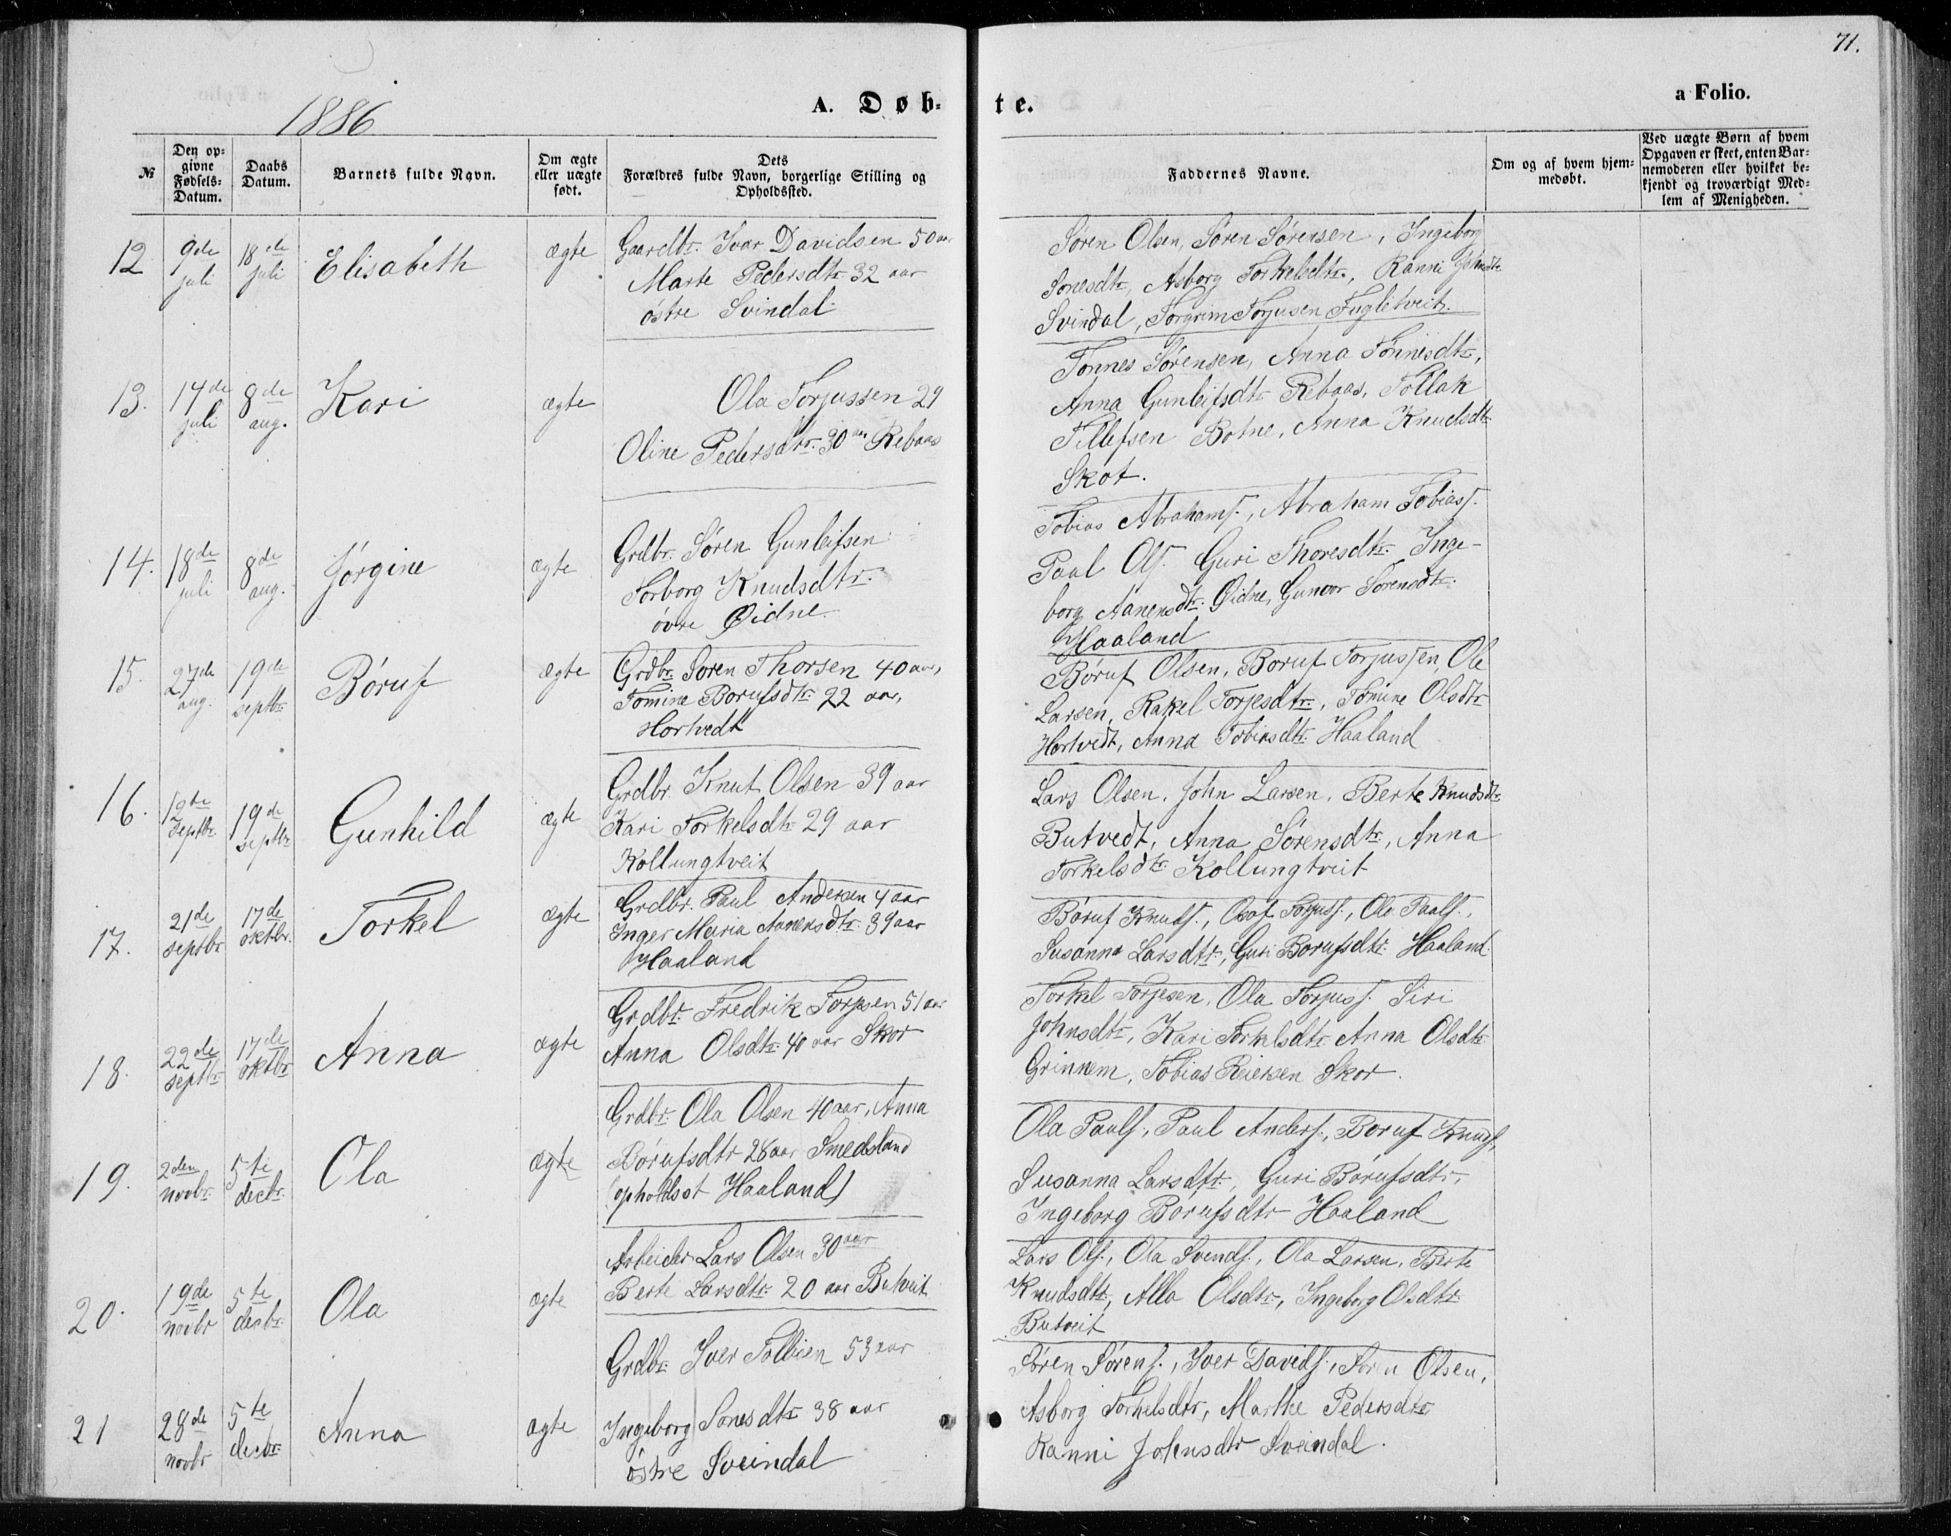 71.
1886
A. Døb-
te.
a Folio.
№
Den op-
givne
Fødsels-
Datum.
Daabs
Datum.
Barnets fulde Navn.
Om ægte
eller uægte
født.
Dets
Forældres fulde Navn, borgerlige Stilling og
Opholdssted.
Faddernes Navne.
Om og af hvem hjem-
medøbt.
Ved uægte Børn af hvem
Opgaven er skeet, enten Bar-
nemoderen eller hvilket be-
kjendt og troværdigt Med-
lem af Menigheden.
12
9de
juli
18de
juli
Elisabeth
ægte
Gaardbr. Ivar Davidsen 50 aar
Marte Pedersdtr. 32 aar
østre Svindal
Søren Olsen, Søren Sørensen, Ingeborg
Sonesdtr, Asborg Torkelsdtr., Ranni Johnsdtr
Svindal, Torgrim Torjusen Fugletveit.
13.
14de
juli
8de
aug.
Kari
ægte
Ola Torjussen 29
Oline Pedersdtr. 30 aar Rebaas
Tønnes Sørensen, Anna Tønnesdtr,
Anna Gunleifsdtr Rebaas, Tollak
Tellefsen Botne, Anna Knudsdtr
Skot.
14.
18de
juli
8de
aug.
Jørgine
ægte
Grdbr. Søren Gunleifsen
Torborg Knudsdtr.
øvre Øidne
Tobias Abrahams., Abraham Tobiass.
Paal Ols. Guri Thoresdtr. Inge-
borg Aanensdtr. Øidne, Gunvor Sørensdtr.
Haaland
15.
27de
aug.
19de
septbr
Børuf
ægte
Grdbr. Søren Thorsen 40 aar,
Tomine Borufsdtr 22 aar,
Hortvedt
Børuf Olsen, Boruf Torjussen, Ole
Larsen, Rakel Torjesdtr., Tomine Olsdtr
Hortvedt, Anna Tobiasdtr. Haaland
16.
12te
septbr
19de
septbr
Gunhild
ægte
Grdbr. Knut Olsen 39 aar
Kari Torkelsdtr 29 aar
Kollungtveit
Lars Olsen, John Larsen, Berte Knudsdtr
Butvedt, Anna Sørensdtr, Anna
Torkelsdtr. Kollungtveit
17.
21de
septbr
17de
oktbr.
Torkel
ægte
Grdbr. Paul Andersen 4 aar
Inger Maria Aanensdtr. 39 aar
Haaland
Børuf Knuds., Olaf Torjuss., Ola Paals.,
Susanna Larsdtr, Guri Borufsdtr Haaland.
18.
22de
septbr
17de
oktbr
Anna
ægte
Grdbr. Fredrik Torjusen 51 aar
Anna Olsdtr 40 aar Skor
Torkel Torjesen, Ola Torjuss. Siri
Johnsdtr, Kari Torkelsdtr Anna Olsdtr
Grinnem, Tobias Reiersen Skor.
19.
2den
novbr.
5te
decbr.
Ola
ægte
Grdbr. Ola Olsen 40 aar, Anna
Børufsdtr 26 aar Smedsland
(opholdsst Haaland)
Ola Pauls., Paul Anders., Boruf Knuds,
Susanna Larsdtr., Guri Børufsdtr.
Ingeborg Borufsdtr Haaland
20.
19de
novbr
5te
decbr.
Ola
ægte
Arbeider Lars Olsen 30 aar
Berte Larsdtr. 20 aar Butveit
Lars Ols., Ola Svends., Ola Larsen, Berte
Knudsdtr, Alla Olsdtr, Ingeborg Olsdtr
Butveit
21
28de
novbr
5te
decbr
Anna
ægte
Grdbr. Iver Tollisen 53 aar
Ingeborg Sonesdtr 38 aar
østre Sveindal
Søren Sørens., Iver Davids., Søren Olsen,
Asborg Torkelsdtr, Marthe Pedersdtr
Ranni Johnsdtr Sveindal.